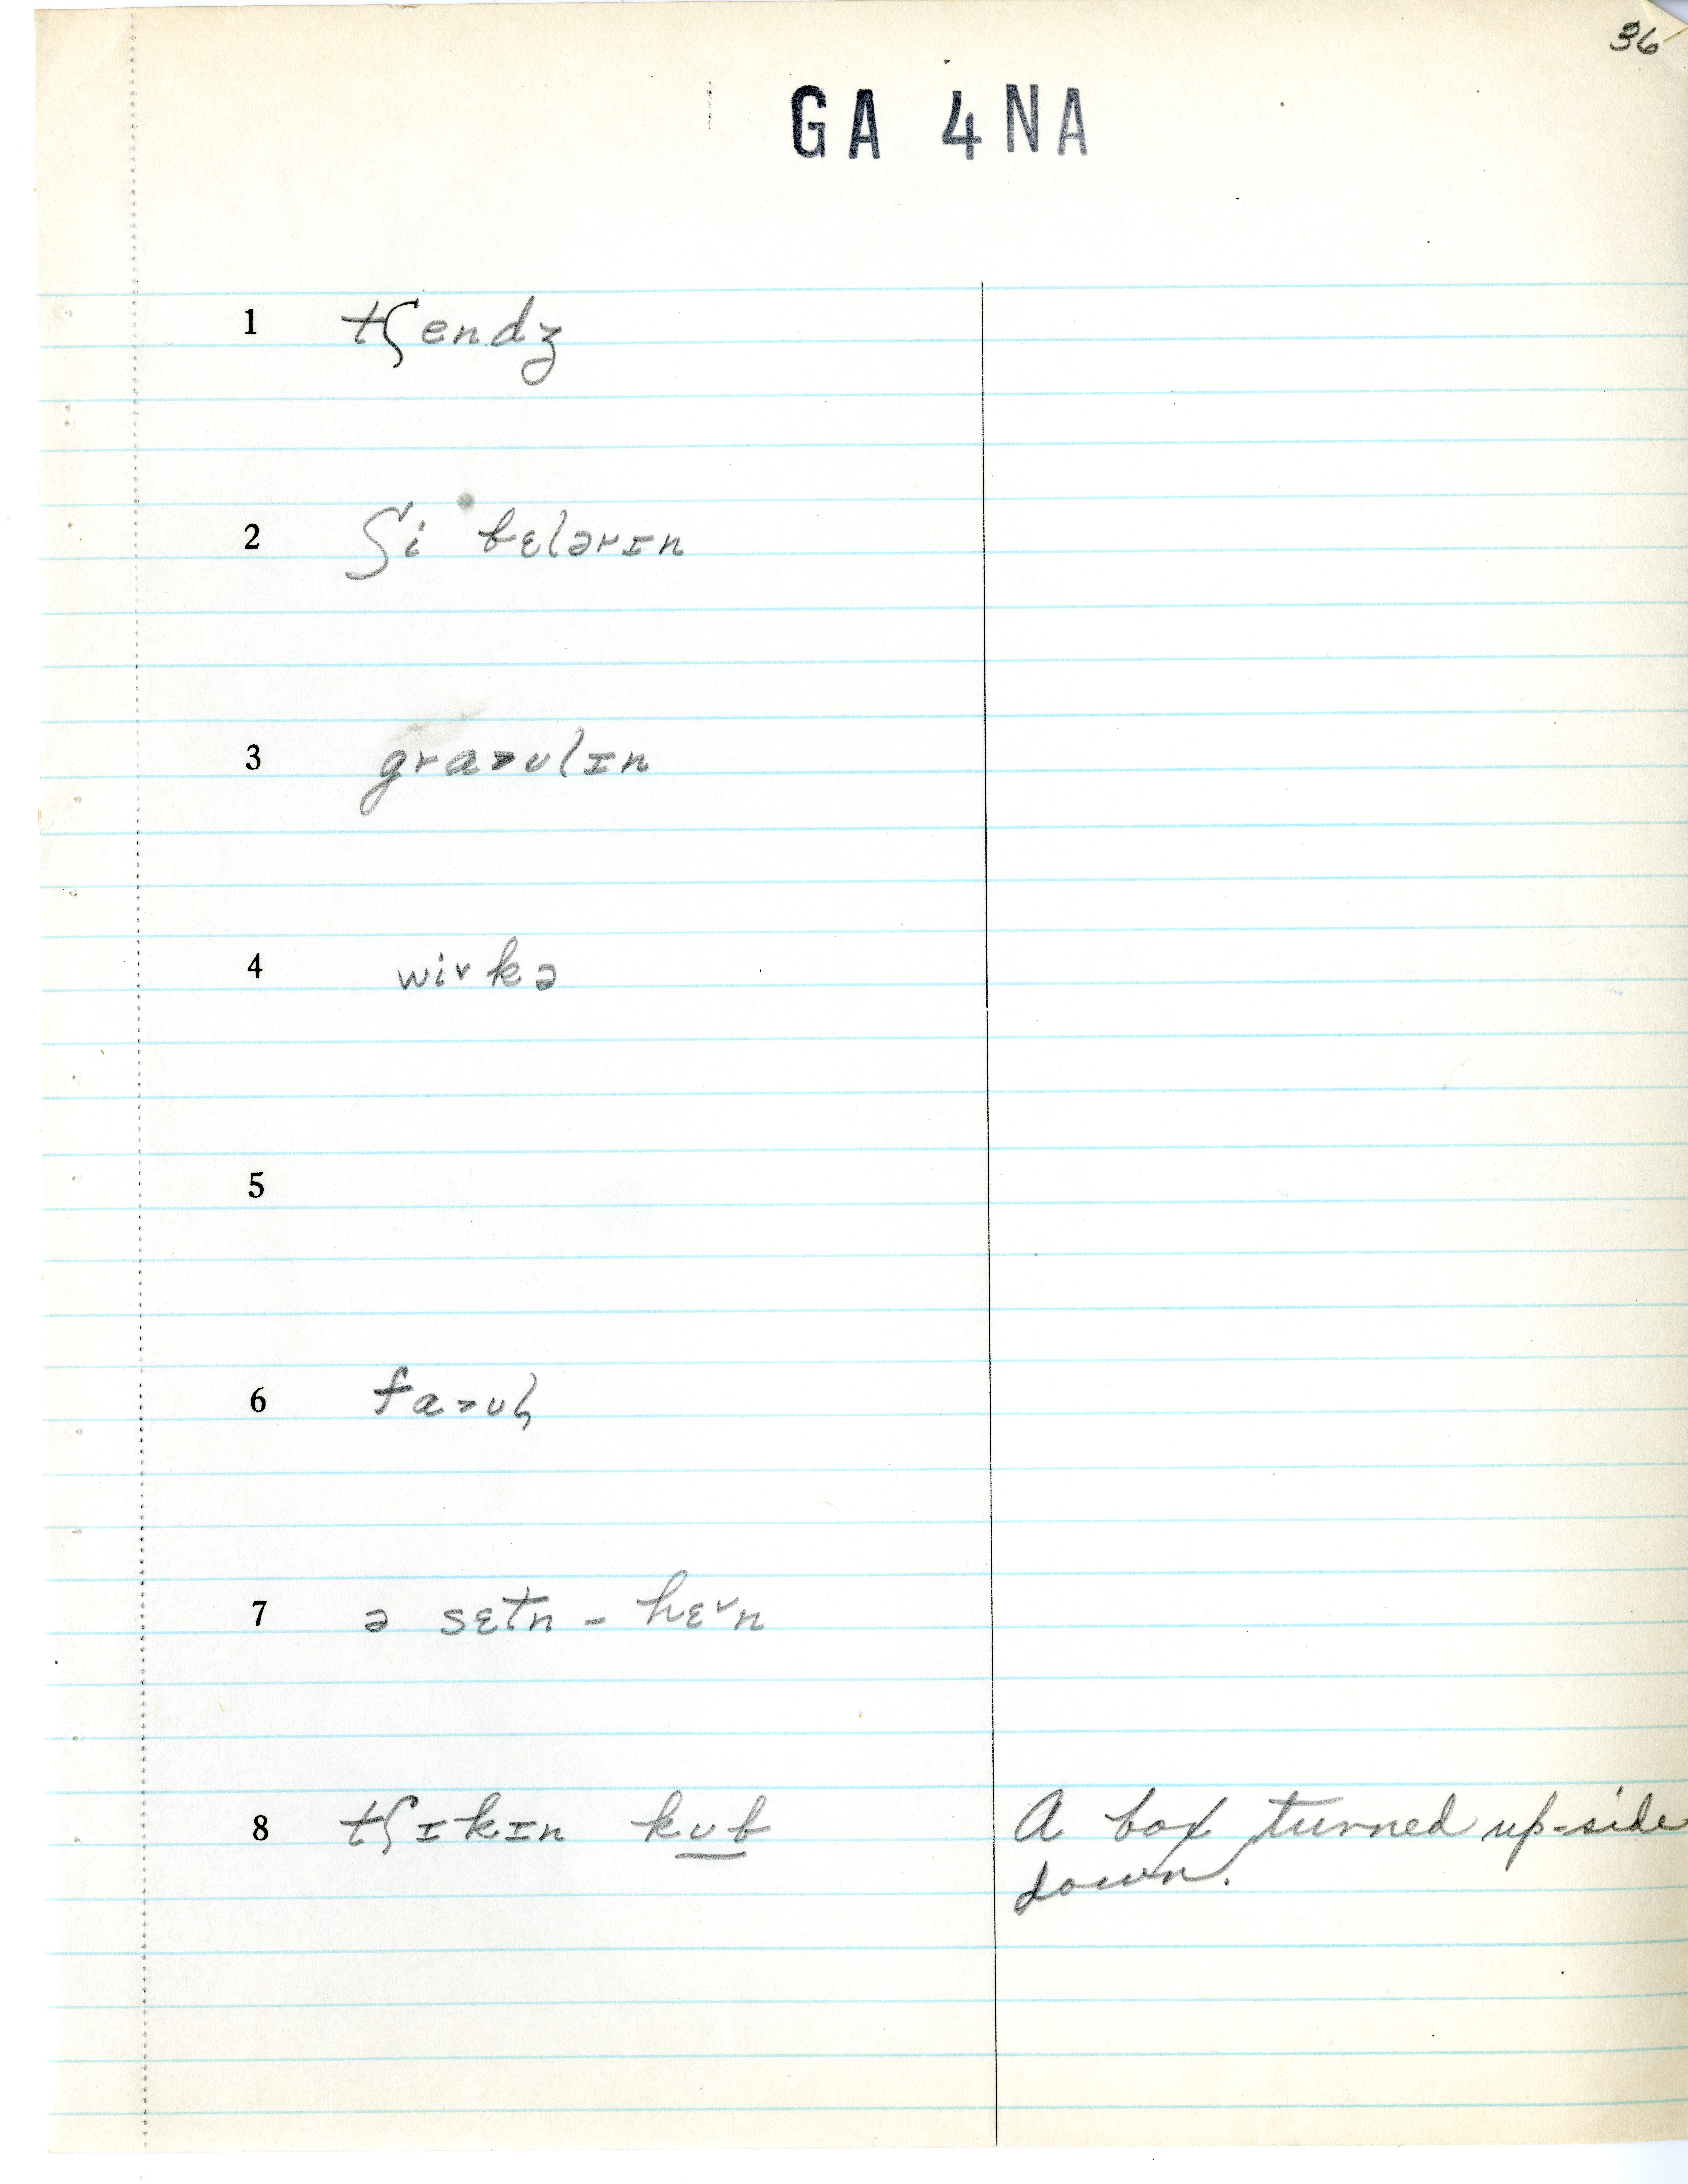 36
GA 4NA
1 tʃendʒ
2 ʃi bɛlərɪn
3 gra>ulɪn
4 wi˅kə
5
6 fa>uɫ
7 ə sɛtn - hɛ˅n
8 tʃɪkɪn kub A box turned up-side
down.